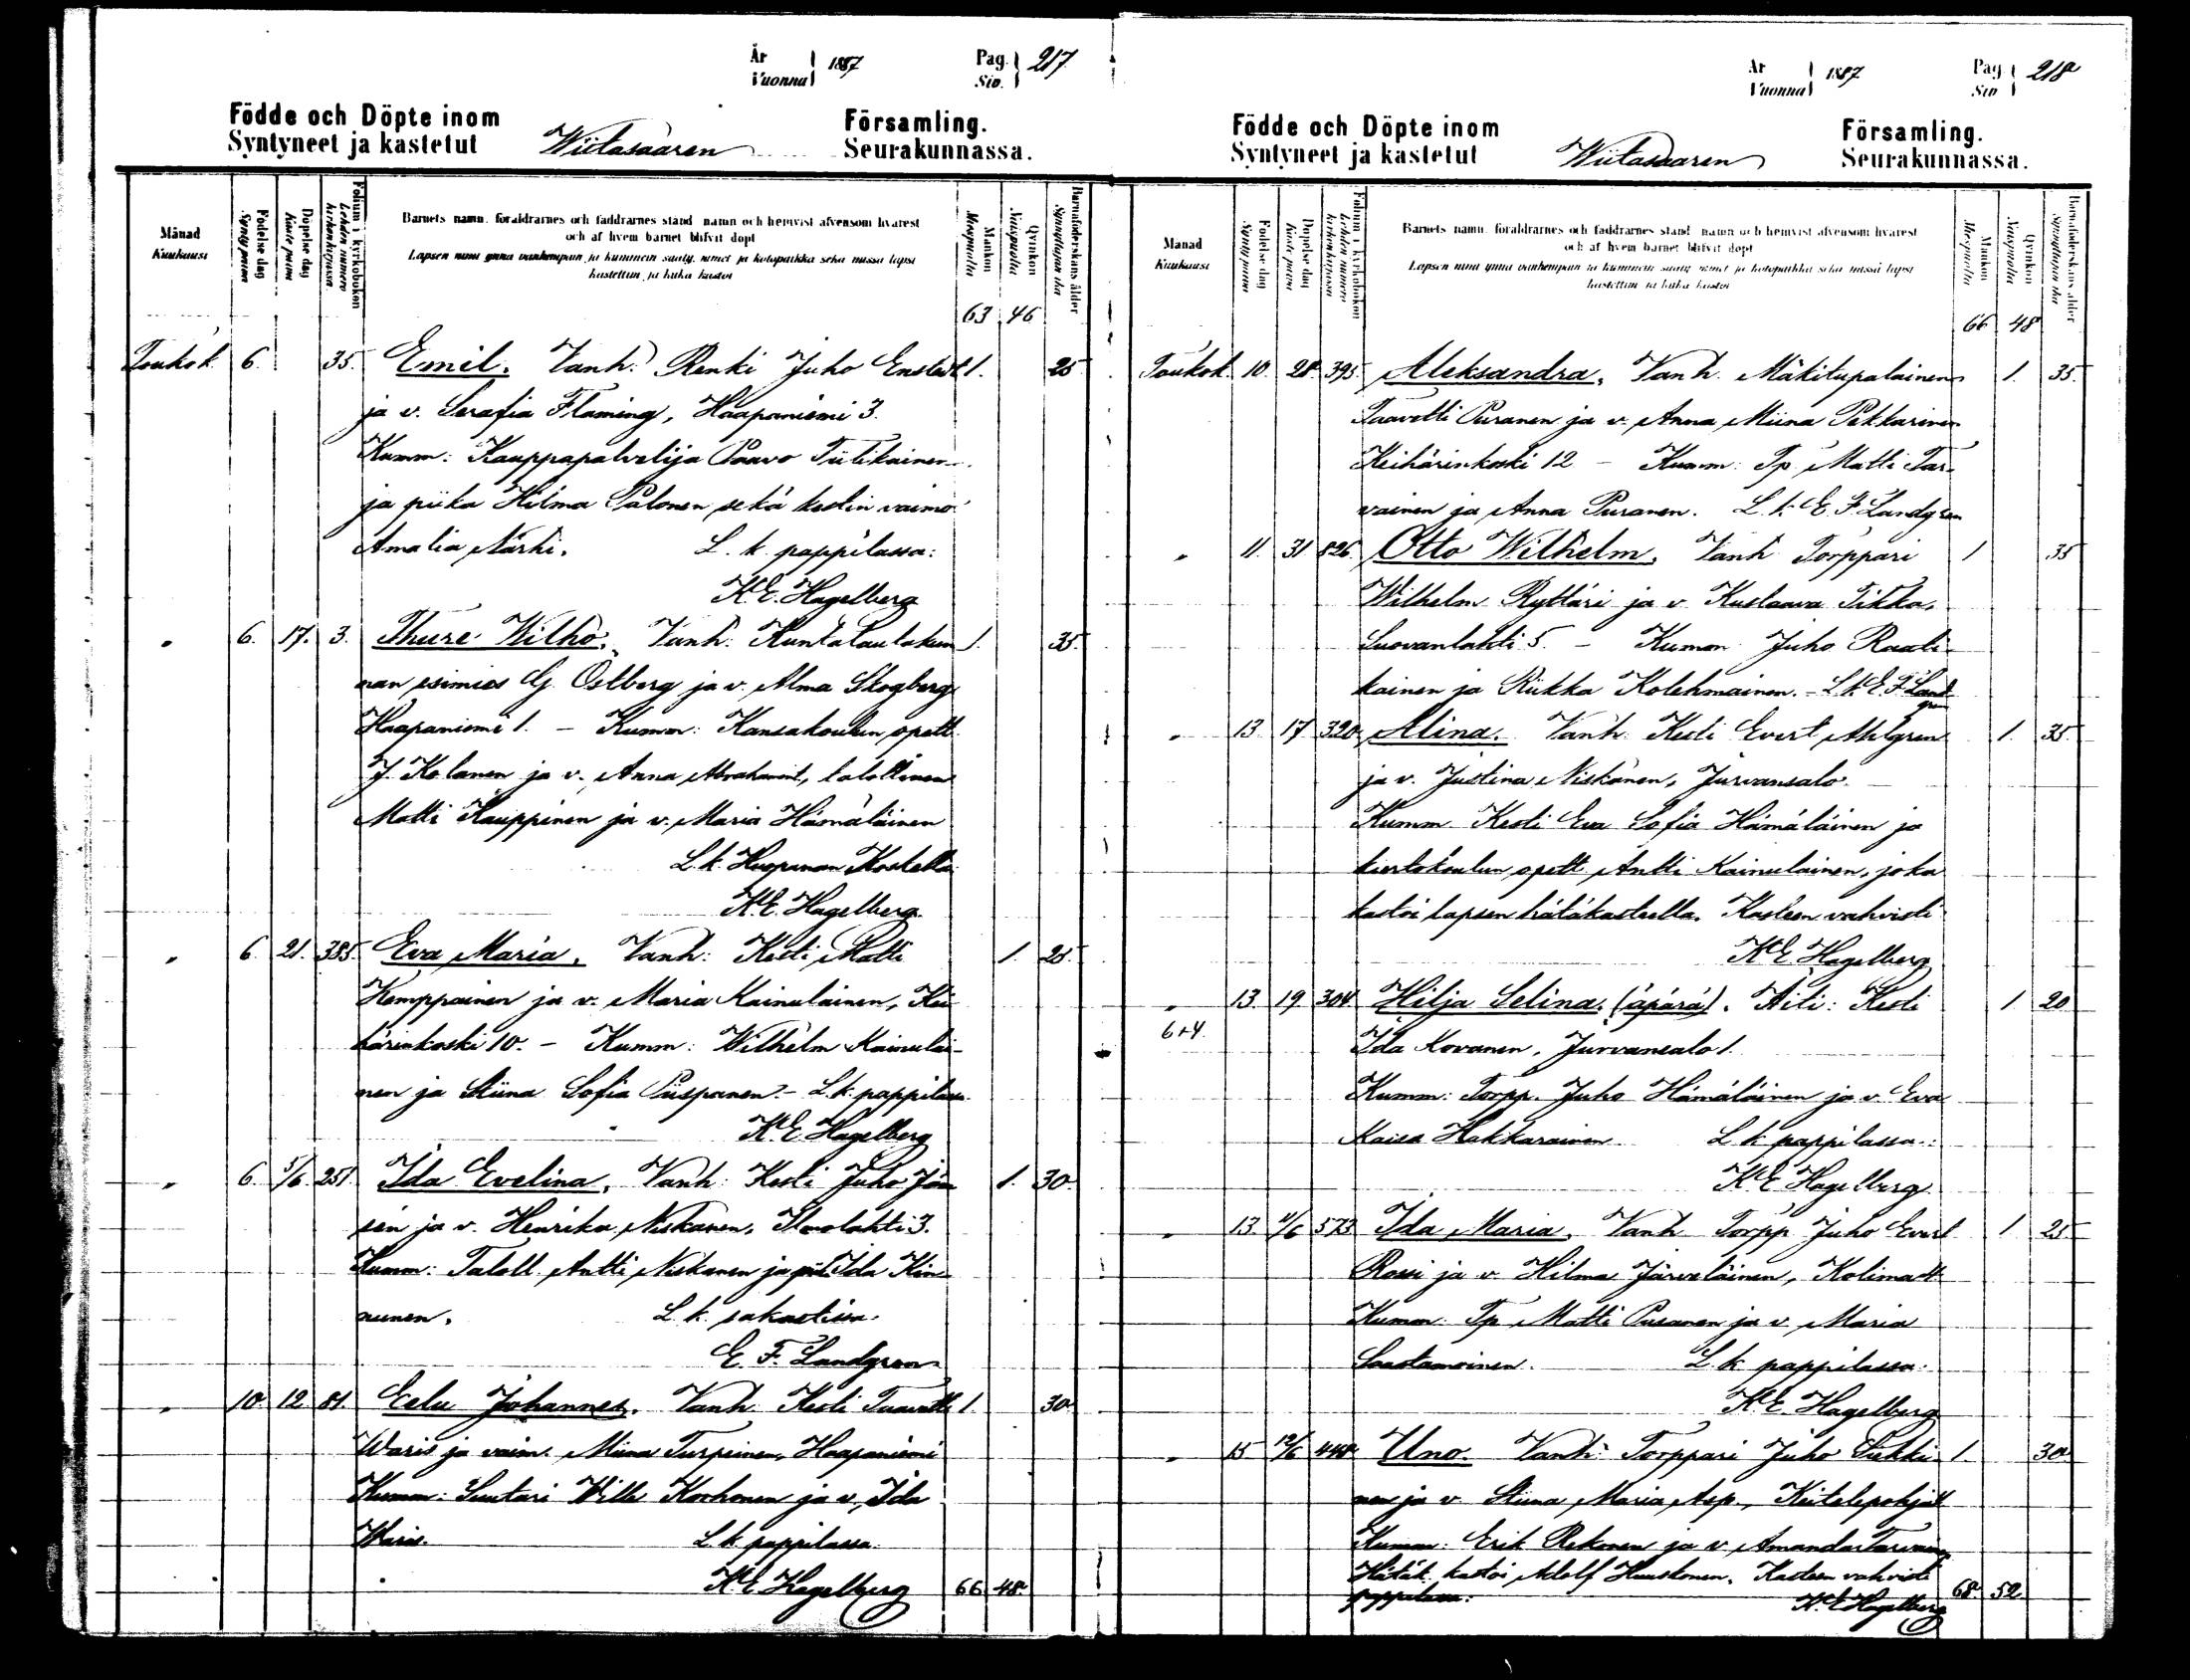 År Vuonna 1887 Pag. Siv. 217
Födde och Döpte inom Församling.
Syntyneet ja kastetut Wiitasaaren Seurakunnassa.
Månad Kuukausi
Födelse dag Synty päivä
Döpelse dag Kaste päivä
Folium i kyrkobokon Lehden numero kirkonkirjassa
Barnets namn, föräldrarnes och faddrarnes stånd namn och hemvist äfvensom hvarest
och af hvem barnet blifvit döpt
Lapsen nimi ynnä vanhempain ja kummein sääty, nimet ja kotopaikka sekä missä lapsi
kastettiin ja kuka kastoi
Mankön Miespuolia
Qvinkön Naispuolia
Barnaföderskans ålder Synnyttäjän ikä
63 46
Toukok. 6. 35. Emil. Vanh. Renki Juho Enstedt 1. 25
ja v. Serafia Flaming, Haapaniemi 3.
Kumm: Kauppapalvelija Paavo Tiitikainen
ja piika Hilma Palonen sekä kestin vaimo
Amalia Närhi. L. k. pappilassa:
K. E. Hagelberg
" 6. 17. 3. Thure Wilho. Vanh. Kuntalautakun 1. 35.
nan esimies G. Östberg ja v. Alma Skogberg
Haapaniemi 1. – Kumm: Kansakoulun opett.
J. Kolanen ja v. Anna Abrahamint., talollinen
Matti Kauppinen ja v. Maria Hämäläinen
L. k. Huopanan Koskella
K. E. Hagelberg.
" 6. 21. 385. Eva Maria. Vanh: Kesti Matti 1. 25.
Kemppainen ja v. Maria Kainulainen, Kei
härinkoski 10. – Kumm: Wilhelm Kainulai-
nen ja Stiina Sofia Piispanen. – L. k. pappilassa.
K. E. Hagelberg
" 6. 5/6 251. Ida Evelina. Vanh: Kesti Juho Jän 1. 30.
sén ja v. Henrika Niskanen, 3.
Kumm: Taloll. Antti Niskanen ja piik. Ida Kin-
nunen. L. k. sakastissa.
E. F. Landgren
" 10. 12. 81. Eelu Johannes. Vanh. Kesti Taavetti 1. 30.
Waris ja vaim. Miina Turpeinen, Haapaniemi
Kumm: Suutari Wille Korhonen ja v. Ida
Waris. L. k. pappilassa.
K. E. Hagelberg 66 48
År Vuonna 1887 Pag Siv 218
Födde och Döpte inom Församling.
Syntyneet ja kastetut Wiitasaaren Seurakunnassa.
Månad Kuukausi
Födelse dag Synty päivä
Döpelse dag Kaste päivä
Folium i kyrkobokon Lehden numero kirkonkirjassa
Barnets namn, föräldrarnes och faddrarnes stånd namn och hemvist äfvensom hvarest
och af hvem barnet blifvit döpt
Lapsen nimi ynnä vanhempain ja kummein sääty, nimet ja kotopaikka sekä missä lapsi
kastettiin ja kuka kastoi
Mankön Miespuolia
Qvinkön Naispuolia
Barnaföderskans ålder Synnyttäjän ikä
66 48
Toukok. 10. 28. 395. Aleksandra. Vanh. Mäkitupalainen 1. 35.
Taavetti Puranen ja v. Anna Miina Pekkarinen
Keihärinkoski 12 – Kumm: Tp. Matti Tar-
vainen ja Anna Puranen. L. k. E. F. Landgren
" 11. 31. 826. Otto Wilhelm. Vanh Torppari 1 35
Wilhelm Ryttäri ja v Kustaava Tikka.
Suovanlahti 5. – Kumm Juho Raati-
kainen ja Riikka Kolehmainen. – L. k. E. F. Land
gren
" 13 17 320. Alina. Vanh. Kesti Evert Ahlgren 1. 35.
ja v. Justina Niskanen, Jurvansalo.
Kumm Kesti Eva Sofia Hämäläinen ja
kiertokoulun opett. Antti Kainulainen, joka
kastoi lapsen hätäkasteella. Kasteen vahvisti
K. E. Hagelberg
" 13. 19 304 Hilja Selina. (äpärä). Äiti: Kesti 1 20
6+4. Ida Kovanen, Jurvansalo 1.
Kumm: Torpp. Juho Hämäläinen ja v. Eva
Kaisa Hakkarainen L. k. pappilassa.:
K. E. Hagelberg.
" 13. 11/6 573 Ida Maria. Vanh Torpp Juho Evert 1 25
Rossi ja v. Hilma Järveläinen, Kolima
Kumm. Tp Matti Puranen ja v. Maria
Saastamoinen. L. k. pappilassa.
K. E. Hagelberg
" 15. 12/6 448 Uno. Vanh: Torppari Juho Siekki- 1. 30
nen ja v. Stiina Maria Asp., Keitelepohja
Kumm: Erik Rekonen ja v. Amanda Tarvainen
Hätäk. kastoi Adolf Huuskonen. Kasteen vahvisti
pappilassa: K. E. Hagelberg 68 52